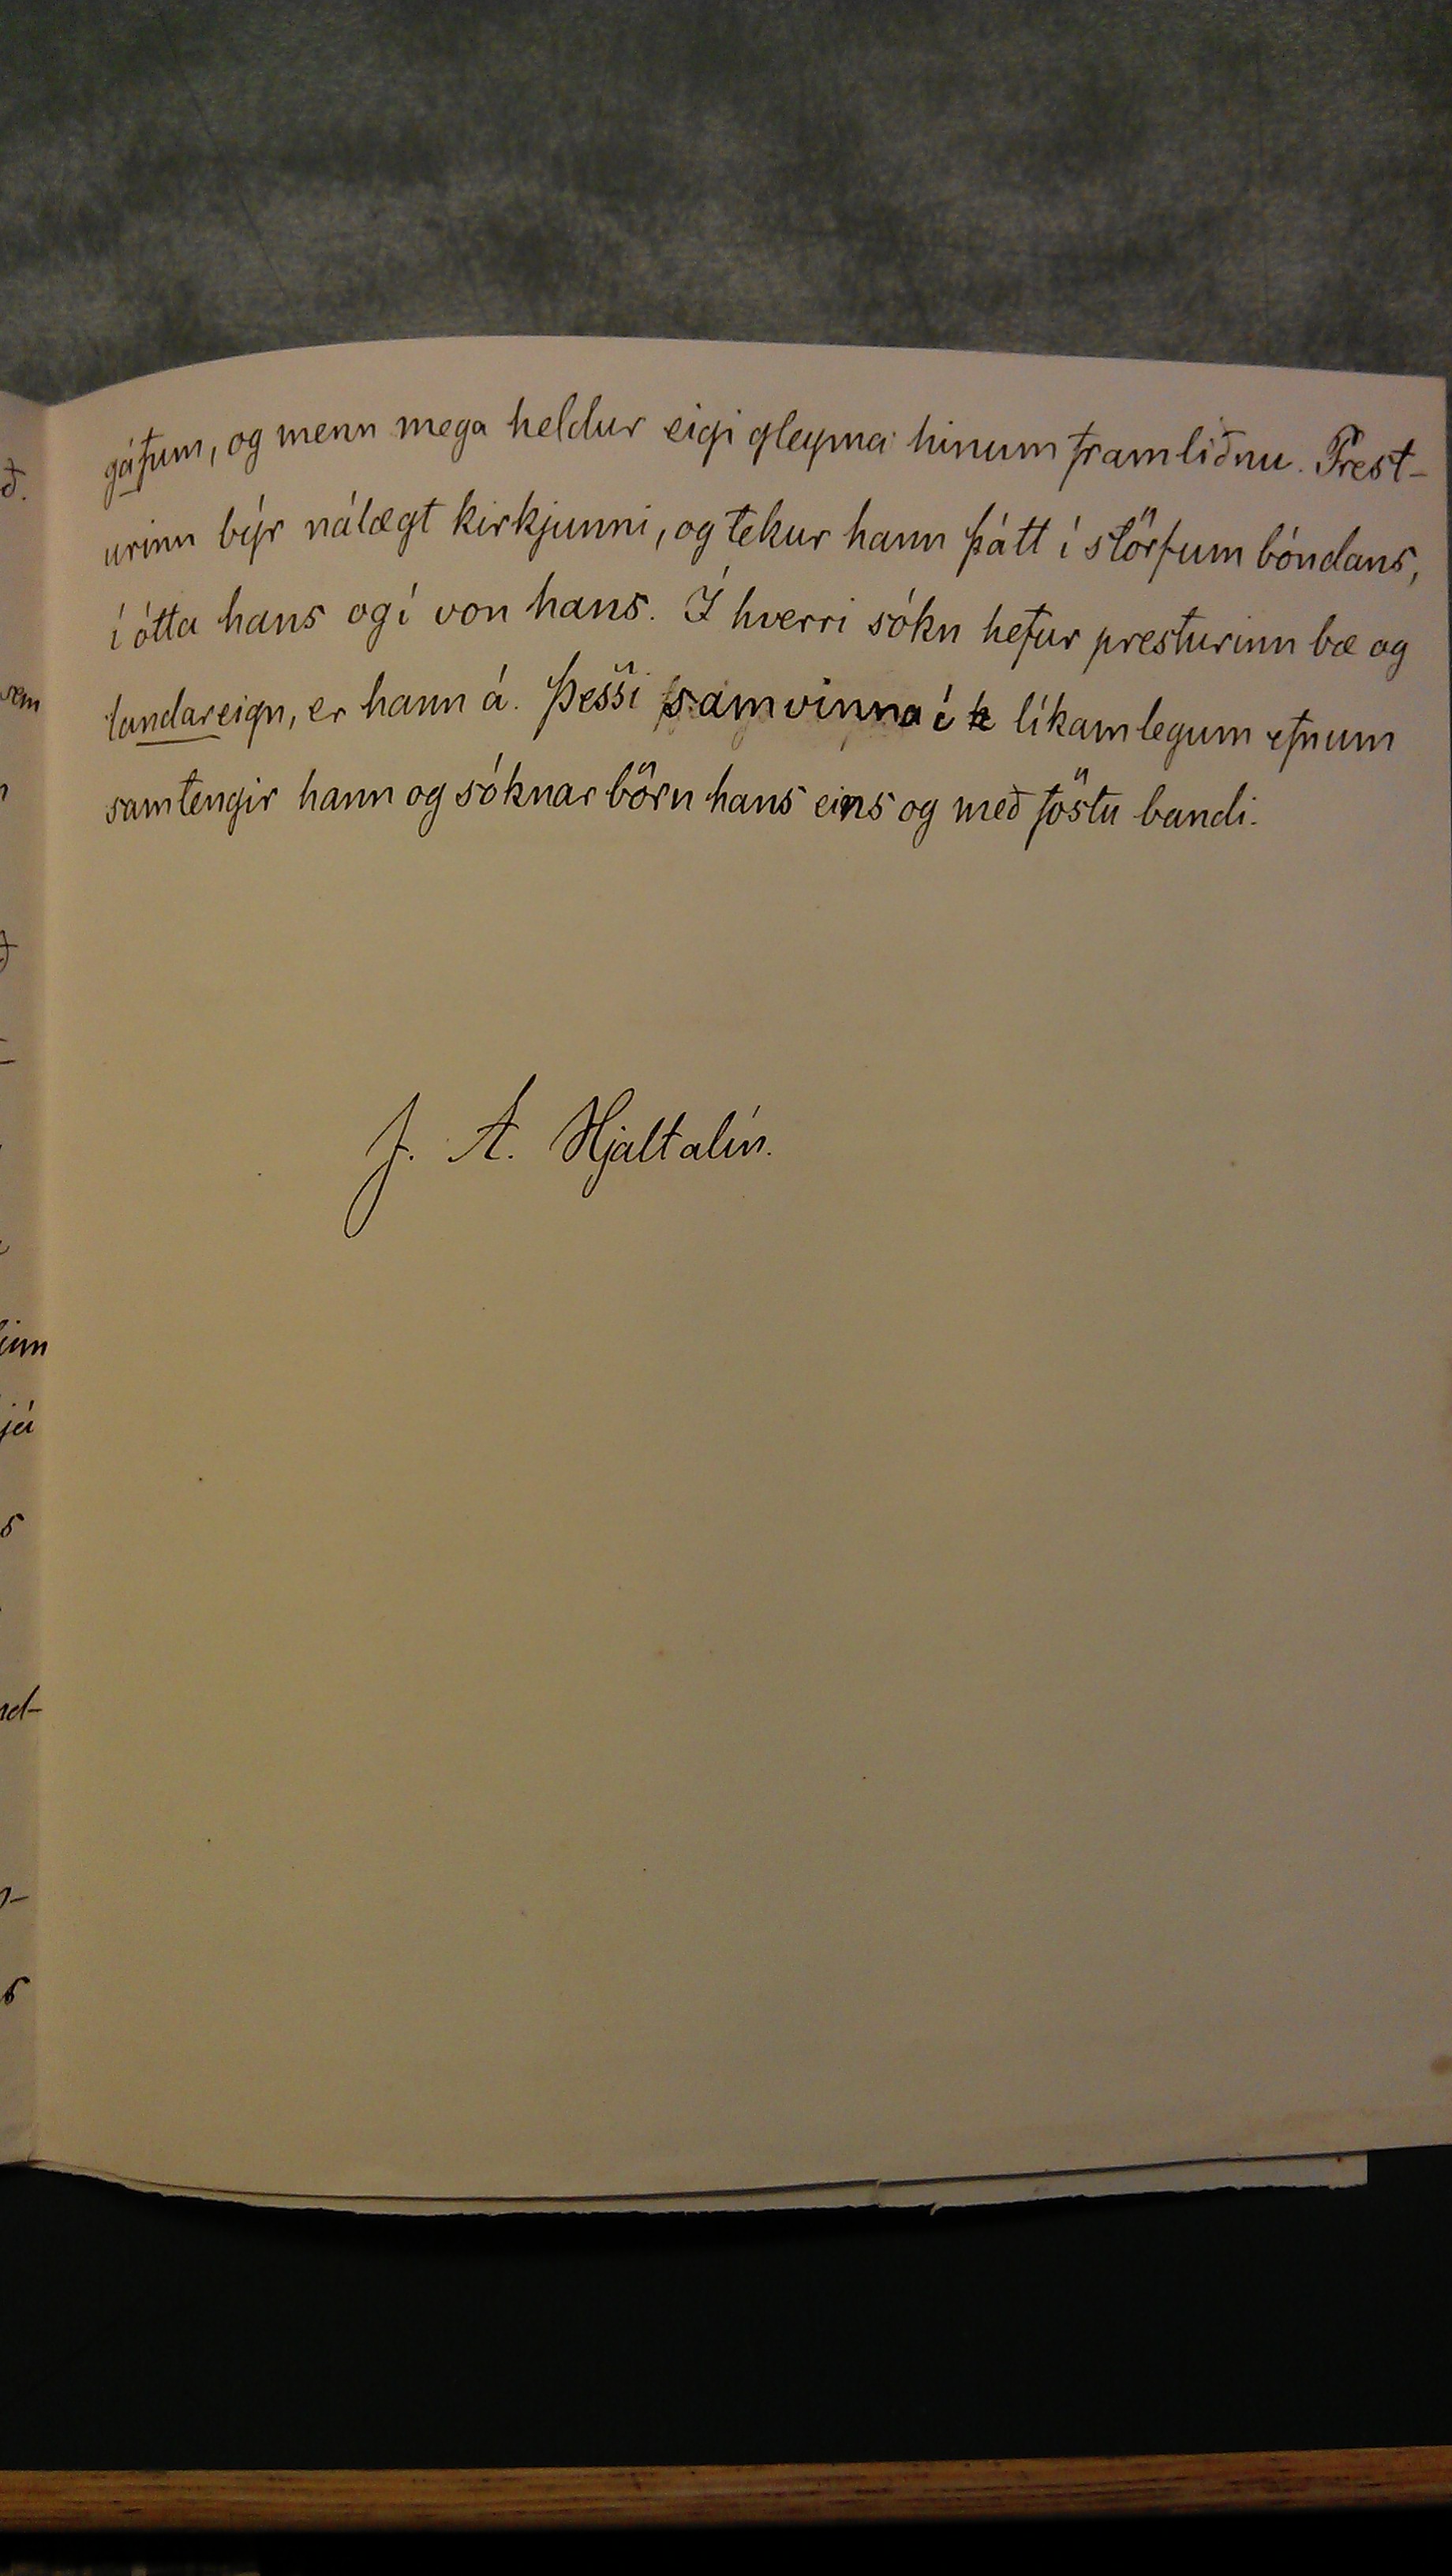 gáfum, og menn mega heldur eigi gleyma hinum framliðnu. Prest-
urinn býr nálægt kirkjunni, og tekur hann þátt í störfum bóndans,
í ótta hans og í von hans. Í hverri sókn hefur presturinn bæ og
landareign, er hann á. Þessi samvinna í líkamlegum efnum
samtengir hann og sóknarbörn hans eins og með föstu bandi.
J. A. Hjaltalín.